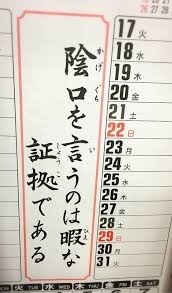 陰口を言うのは暇な
かげぐち
い
ひま
証拠である
しょうこ
17 火
18 水
19 木
20 金
21 土
22 日
23 月
24 火
25 水
26 木
27 金
28 土
29 日
30 月
31 火
火 TUE 水 WED 木 THU 金 FRI 土 SAT